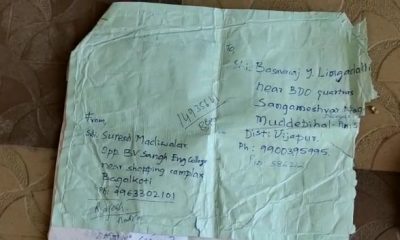 To,
Sri: Basavaraj Y. Lingadalli
near BDO quartrus
Sangameshvar Nagar
Muddebihal
Dist: Vijapur.
Ph: 9900395995
From,
Sri: Suresh Madiwalar
Opp BV Sangh Eng College
near shopping complax
Bagalkoti
Ph: 9963302101